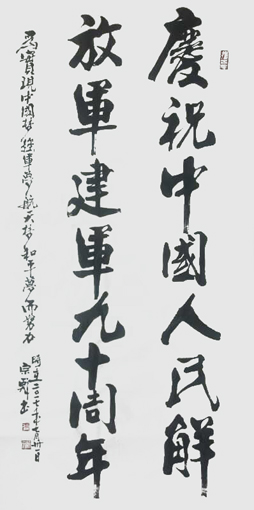 慶祝中國人民解
放軍建軍九十周年
為實現中國夢強軍夢航天夢和平夢而努力
時在二〇一七年七月卅一日